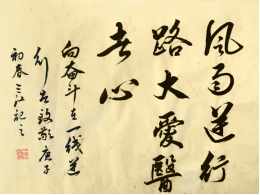 風雨逆行
路大愛醫
者心
向奋斗在一线逆
行者致敬庚子
初春三江記之